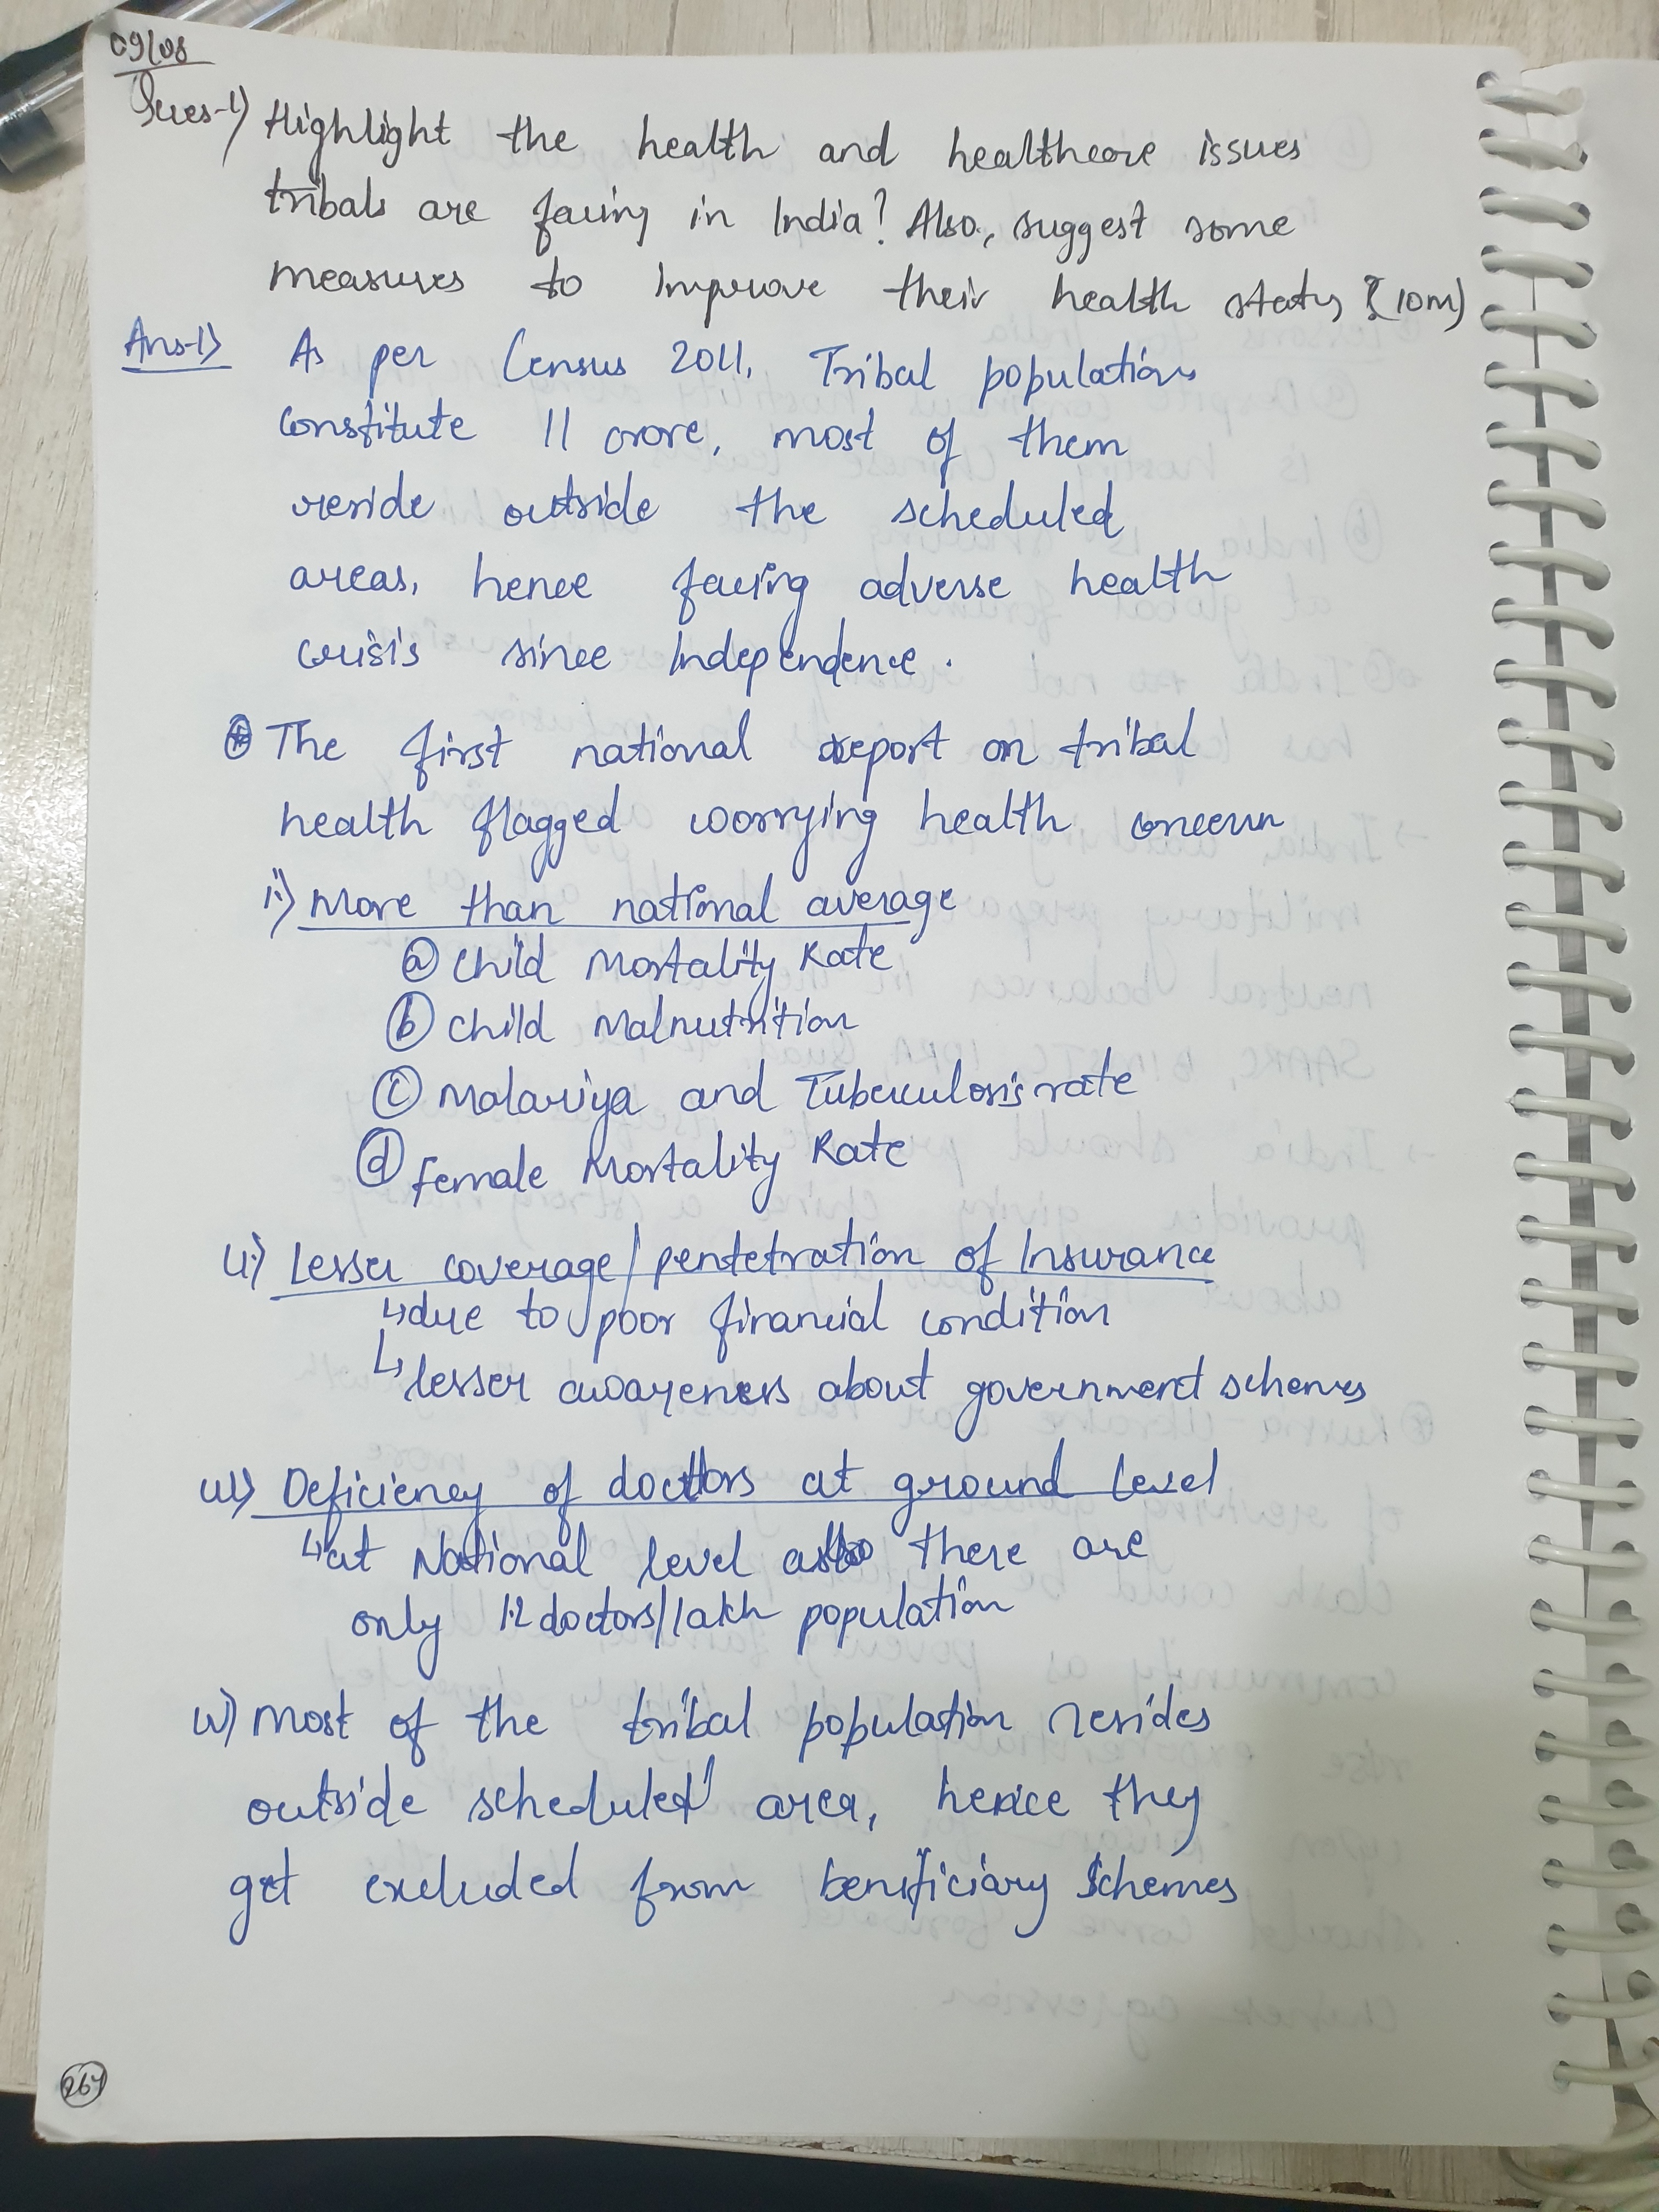 09/08
Ques-1) Highlight the health and healthcare issues
tribals are facing in India? Also, suggest some
measures to improve their health status? (10M)
Ans-1) As per Census 2011, Tribal population
constitute 11 crore, most of them
reside outside the scheduled
areas, hence facing adverse health
crisis since Independence.
The first national report on tribal
health flagged worrying health concern
i) More than national average
(a) Child Mortality Rate
(b) Child Malnutrition
(c) Malariya and Tuberculosis rate
(d) Female Mortality Rate
ii) Lesser coverage/pentetration of Insurance
↳ due to poor financial condition
↳ lesser awareness about government schemes
iii) Deficiency of doctors at ground level
↳ at National level also there are
only 12 doctors/lakh population
iv) Most of the tribal population resides
outside scheduled area, hence they
get excluded from benificiary schemes
267